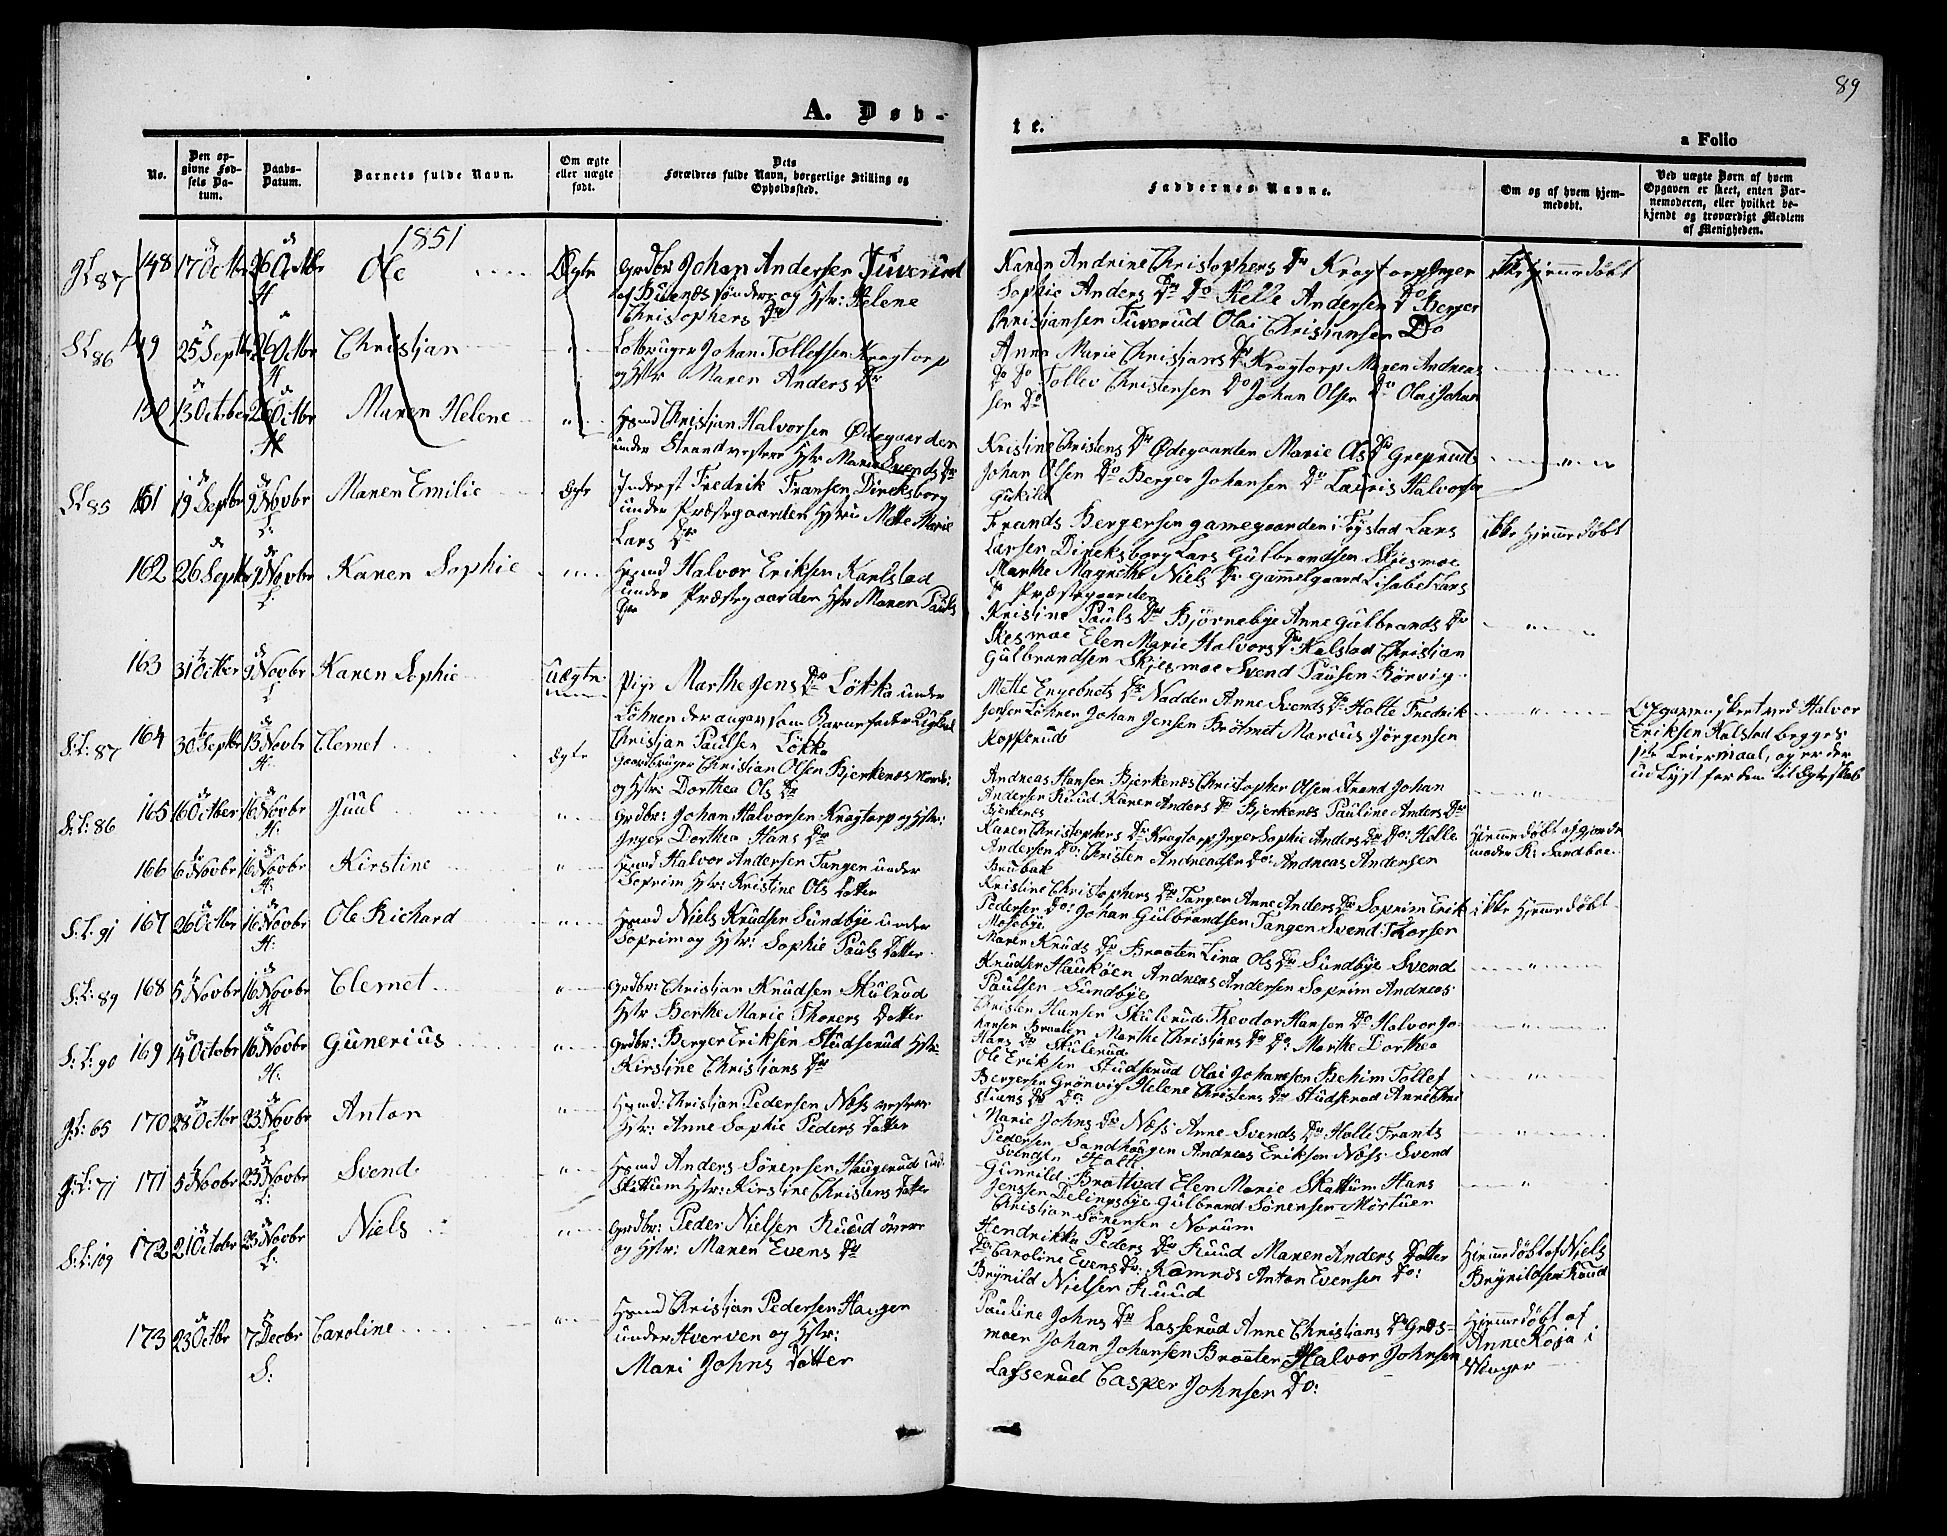 89
A. Døb-
te.
a Folio
No.
Den op-
givne Fød-
sels Da-
tum.
Daabs-
Datum.
Barnets fulde Navn.
Om ægte
eller uægte
født.
Dets
Forældres fulde Navn, borgerlige Stilling og
Opholdssted.
Faddernes Navne.
Om og af hvem hjem-
medøbt.
Ved uægte Børn af hvem
Opgaven er skeet, enten Bar-
nemoderen, eller hvilket be-
kjendt og troværdigt Medlem
af Menigheden.
1851
148 17 Octbr 26 Octbr Ole Ægte
Grdbr Johan Andersen Tuverud
af Buenæs søndre og Hstr: Helene
Christophers Dr
Karen Andrine Christophers Dr Krogtorp Inger
Sophie Anders Dr Do Helle Andersen Do Berger
Christiansen Tuverud Olai Christiansen Do
ikke hjemmedøbt
S.L. 86 149 25 Septbr 26 Octbr Christian "
Lotbruger Johan Tollefsen Krogtorp
og Hstr Maren Anders Dr
Anne Marie Christians Dr Krogtorp Maren Andreas
Do Do Tollev Christensen Do Johan Olsen Do Olai Johan
sen Do
150 13 October 26 Octbr Maren Helene "
Hsmd Christian Halvorsen Ødegaarden
under Strand vestere Hstr Marie Svends Dr
Kristine Christens Dr Ødegaarden Marie Ols Dr Greprud
Johan Olsen Do Berger Johansen Do Lauris Halvorsen
S.L. 85 161 19 Septbr 9 Novbr Maren Emilie Ægte
Inderst Fredrik Fransen Direksborg
under Præstegaarden Hstru Mette Marie
Lars Dr
Frands Bergersen Gamegaarden i Frystad Lars
Larsen Direksborg Lars Gulbrandsen Skjesmoe
Marthe Magrethe Niels Dr Gamelgaard Lisabet Lars
Dr Præstegaarden
ikke hjemmedøbt
162 26 Septbr 9 Novbr Karen Sophie "
Hsmd Halvor Eriksen Karlstad
under Præstegaarden Hstr Maren Pauls
Dr
Kristine Pauls Dr Bjørnebye Anne Gulbrands Dr
Skesmoe Elen Marie Halvors Dr Kalstad Christian
Gulbrandsen Skjesmoe Svend Pausen Rörvig
163 31 Octber 9 Novbr Karen Sophie Uægte
Pige Marthe Jens Dr Løkka under
Löknen der angav som Barnefader Ligl
Christian Paulsen Løkka
Mette Engebrets Dr Nadden Anne Svends Dr Holte Fredrik
Jensen Løknen Johan Jensen Brøtmet Marcus Jörgensen
Kopperud
Opgaven skeet ved Halvor
Eriksen Kalstad begges
1ste Leiermaal, og er der
udlyst for dem til Egteskab
S:L: 87 164 30 Septbr 13 Novbr Clemet Ægte
Gaardbruger Christian Olsen Bjerkenæs Nordre
og Hstr: Dorthea Ols Dr
Andreas Hansen Bjerkenæs Christopher Olsen Strand Johan
Andersen Ruud Karen Anders Dr Bjerkenæs Pauline Anders Dr
Bjerkenæs
S:L: 86 165 16 Octber 16 Novbr Juul "
Grdbr: Johan Halvorsen Krogtorp og Hstr:
Inger Dorthea Hans Dr
Karen Christophers Dr Krogtorp Inger Sophie Anders Dr Do: Helle
Andersen Do: Christen Andreasen Do: Andreas Andersen
Brubak
Hjemmedøbt af Gjorde
moder K: Sandboe
166 6 Novbr 16 Novbr Kirstine "
Hsmd Halvor Andersen Tangen under
Soprim Hstr: Kristine Ols Datter
Kristine Christophers Dr Tangen Anne Anders Dr Soprim Erik
Pedersen Do: Johan Gulbrandsen Tangen Svend Thorsen
Mosebye
ikke hjemmedøbt
S:L: 91 167 26 Octbr 16 Novbr Ole Richard "
Hsmd Niels Knudsen Sundbye under
Soprim og Hstr: Sophie Pauls Datter
Maren Knuds Dr Braaten Lina Ols Dr Sundbye Svend
Knudsen Haukøen Andreas Andersen Soprim Andreas
Paulsen Sundbye
S:L: 89 168 5 Novbr 16 Novbr Clemet "
Grdbr: Christian Knudsen Skulrud
Hstr Berthe Marie Thorers Datter
Christen Hansen Skulerud Theodor Hansen Do Halvor Jo-
hansen Braaten Marthe Christians Dr Do: Marthe Dorthea
Hans Dr Skulerud
S:L: 90 169 14 Octobr 16 Novbr Gunerius "
Grdbr: Berger Eriksen Studserud Hstr:
Kirstine Christians Dr
Ole Eriksen Studserud Olai Johannesen Bechim Tollef
Bergersen Grönvig Helene Christens Dr Studserud Anne Chri
stians Dr Do:
G:L: 65 170 28 Octbr 23 Novbr Anton "
Hsmd: Christian Pedersen Næss vestre
Hstr: Anne Sophie Peders Datter
Marie Johns Dr Næss Anne Svends Dr Holte Frants
Pedersen Sandhougen Andreas Eriksen Næss Svend
Svendsen Holt
G:L: 71 171 5 Novbr 23 Novbr Svend "
Hsmd Anders Sörensen Haugerud und
Skattum Hstr: Kirstine Christens Datter
Gunnild Brattved Elen Marie Skattum Hans
Jenssen Delingsbye Gulbrand Sörensen Mortuer
Christian Sörensen Norum
S:L: 109 172 21 Octobr 23 Novbr Niels "
Grdbr: Peder Nielsen Ruud övere
og Hstr: Maren Evens Dr
Hendrikka Peders Dr Ruud Maren Anders Datter
Do Caroline Evens Do: Komnæs Anton Evensen Do:
Brynild Nielsen Ruud
Hjemmedøbt af Niels
Brynildsen Ruud
173 23 Octbr 7 Decbr Caroline "
Hsmd Christian Pedersen Haugen
under Hverven og Hstr:
Mari Johns Datter
Pauline Johns Dr Lasserud Anne Christians Dr Græs=
moen Johan Johansen Braaten Halvor Johnsen
Lasserud Casper Johnsen Do:
Hjemmedøbt af
Anne Koja i